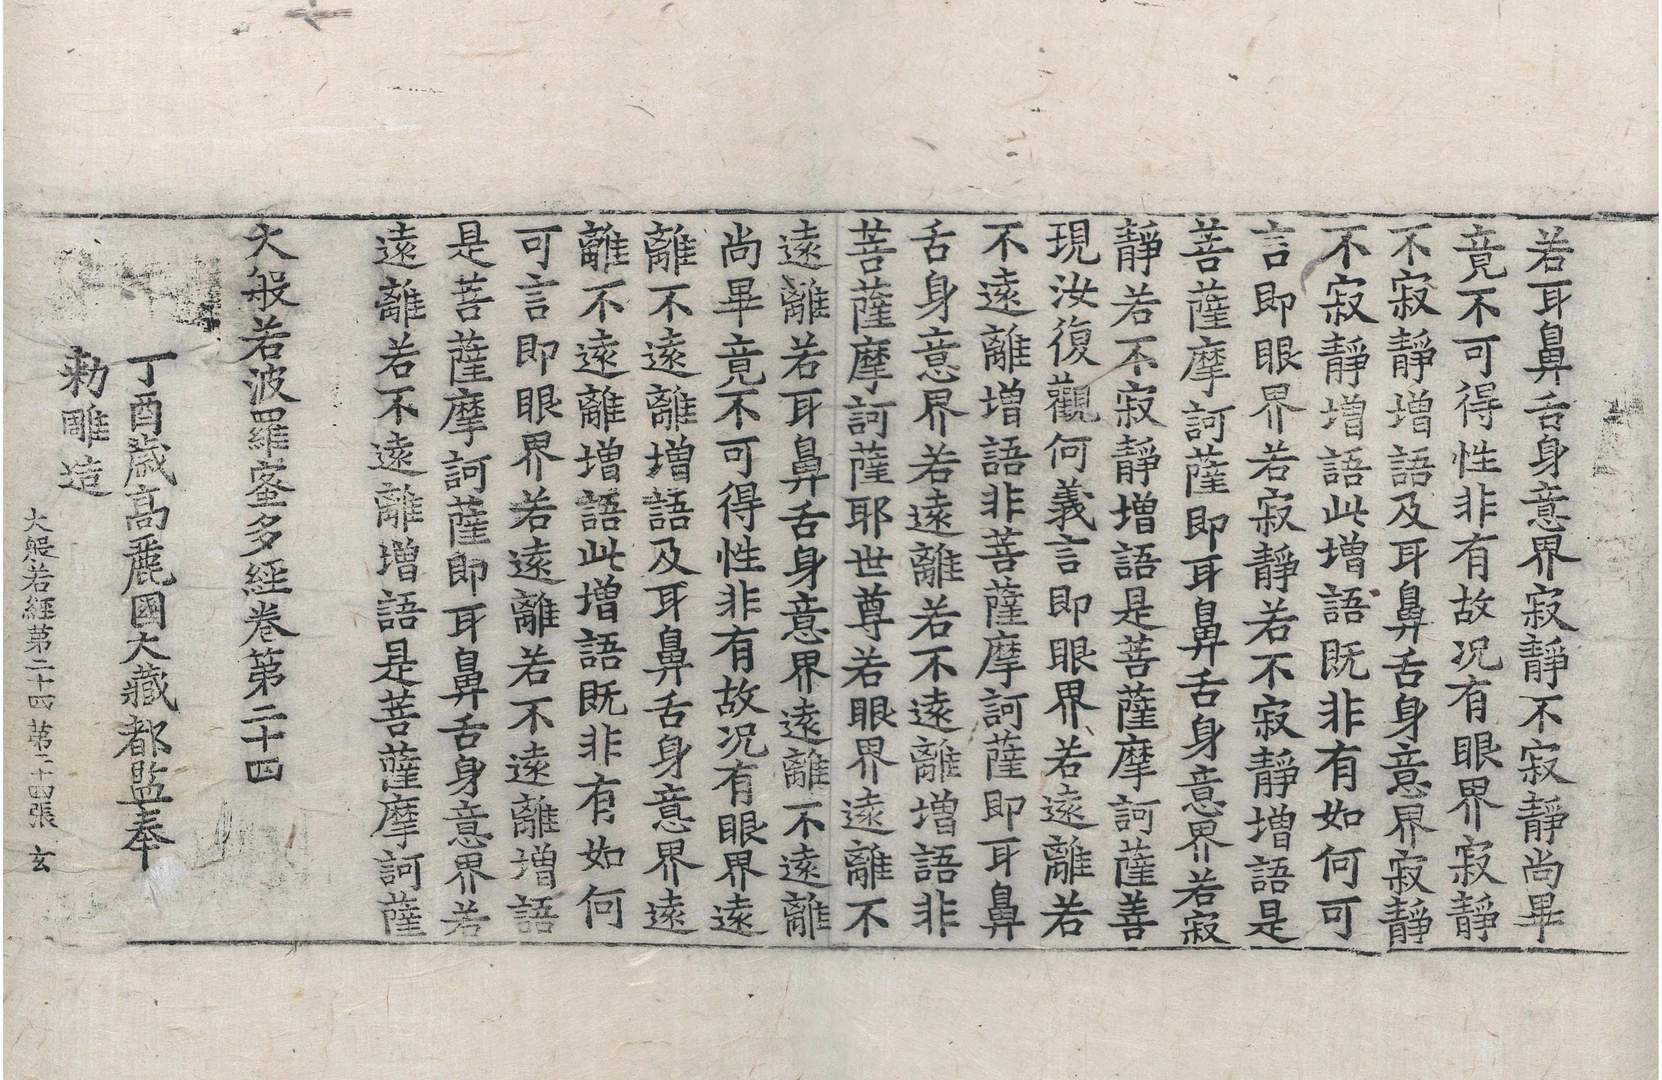 若耳鼻舌身意界寂靜不寂靜尚畢
竟不可得性非有故況有眼界寂靜
不寂靜增語及耳鼻舌身意界寂靜
不寂靜增語此增語既非有如何可
言即眼界若寂靜若不寂靜增語是
菩薩摩訶薩即耳鼻舌身意界若寂
靜若不寂靜增語是菩薩摩訶薩善
現汝復觀何義言即眼界若遠離若
不遠離增語非菩薩摩訶薩即耳鼻
舌身意界若遠離若不遠離增語非
菩薩摩訶薩耶世尊若眼界遠離不
遠離若耳鼻舌身意界遠離不遠離
尚畢竟不可得性非有故況有眼界遠
離不遠離增語及耳鼻舌身意界遠
離不遠離增語此增語既非有如何
可言即眼界若遠離若不遠離增語
是菩薩摩訶薩即耳鼻舌身意界若
遠離若不遠離增語是菩薩摩訶薩
大般若波羅蜜多經卷第二十四
丁酉歲高麗國大藏都監奉
勑雕造
大般若經第二十四 第二十四張 玄